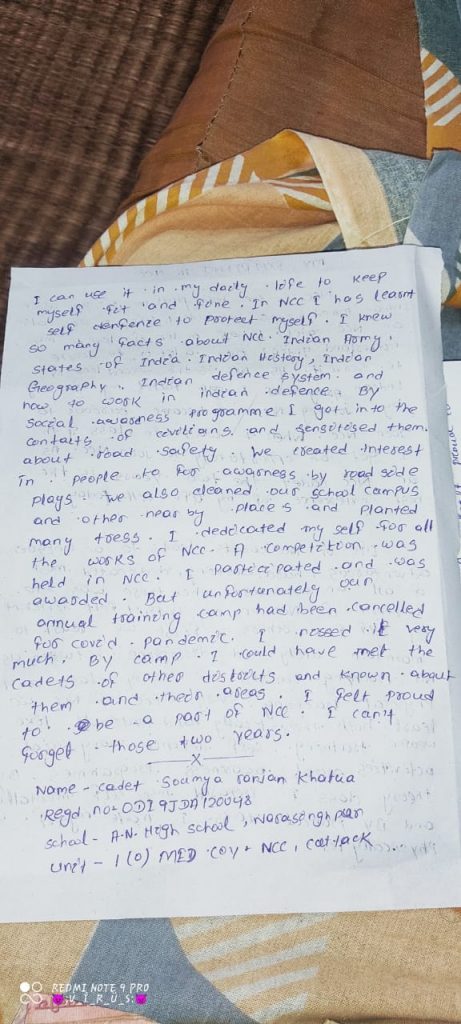 I can use it in my daily life to keep
myself fit and fine. In NCC I has learnt
self denfenze to protect myself. I knew
so many facts about NCC. Indian Army,
states of India. Indian History, Indian
Geography. Indian defence system. and
how to work in indian defence. By
social awarness programme I got into the
contacts of civilians and sensitised them
about road safety. We created interest
In people to for awarness by road side
plays. We also cleaned our school campus
and other near by places and planted
many tress. I dedicated my self for all
the works of NCC. A competiction was
held in NCC. I participated and was
awarded. But unfortunately our
annual training camp had been cancelled
for covid pandemic. I missed it very
much. By camp I could have met the
cadets of other districts and known about
them and their areas. I felt proud
to be a part of NCC. I can't
forget those two years.
X
Name - cadet Soumya ranjan Khatua
Regd. no- ODI9JDA120048
school - A.N. High school, Narasinghpur
Unit - 1(O) MED COY NCC, cattack
REDMI NOTE 9 PRO
V_I_R_U_S